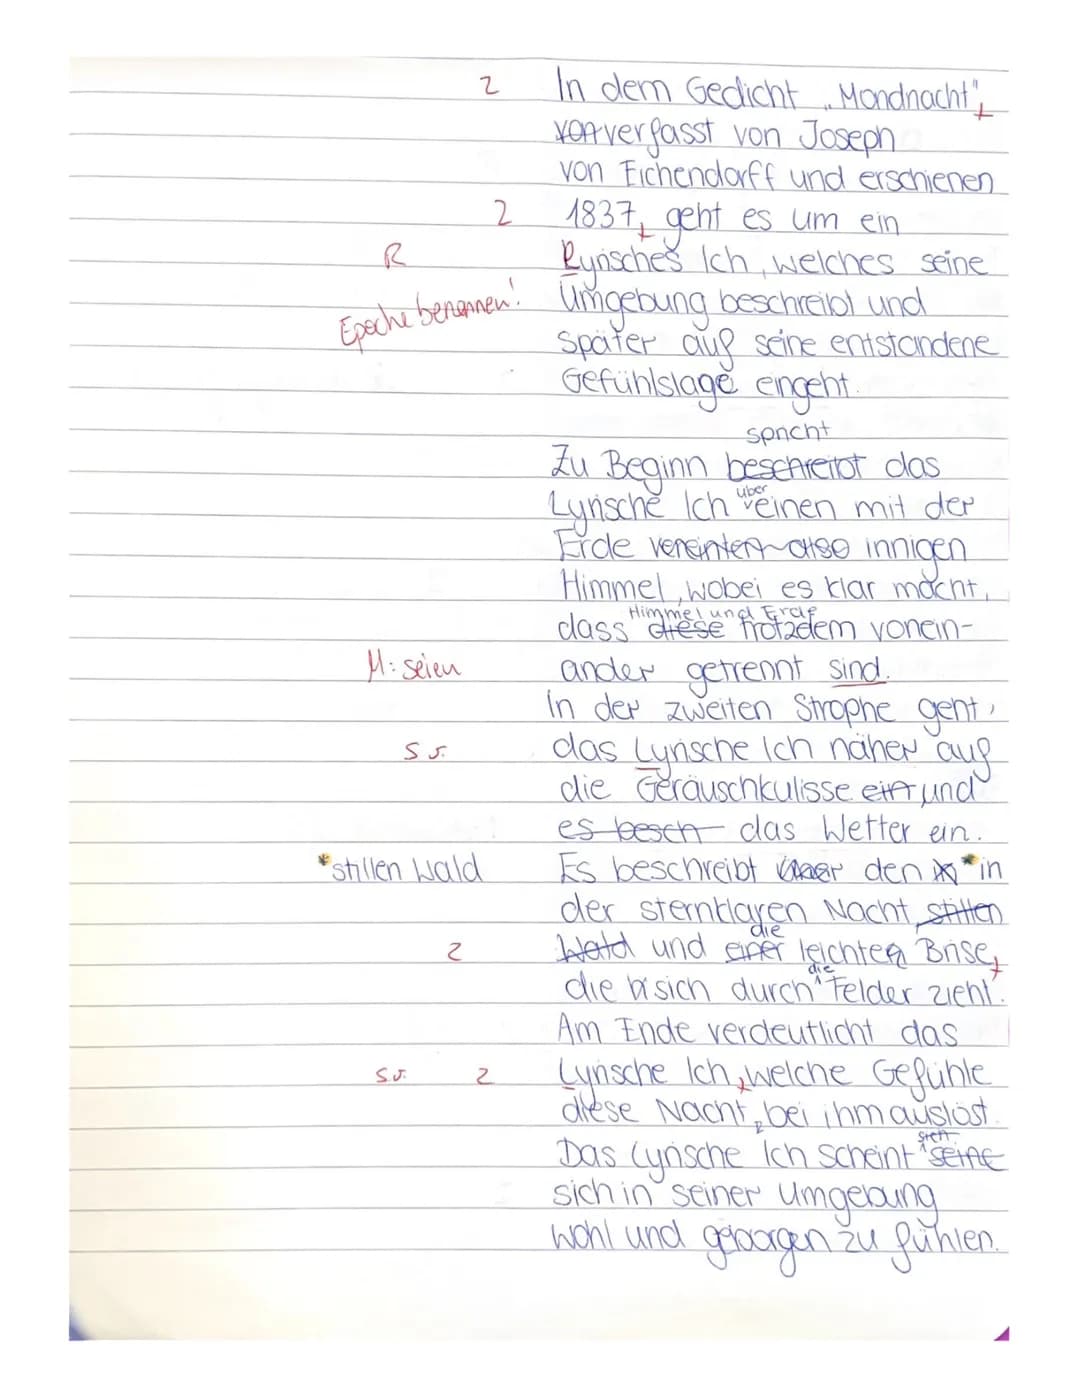 2 In dem Gedicht „Mondnacht",
von verfasst von Joseph
von Eichendorff und erschienen
2 1837, geht es um ein
R Lyrisches Ich, welches seine
Epoche benennen! Umgebung beschreibt und
später auf seine entstandene
Gefühlslage eingeht.
spricht
Zu Beginn beschreibt das
Lyrische Ich über einen mit der
Erde vereinten also innigen
Himmel, wobei es klar macht,
Himmel und Erde
dass diese trotzdem vonein-
M: seien ander getrennt sind.
In der zweiten Strophe geht
s.o. das Lyrische Ich näher auf
die Geräuschkulisse ein und
es besch das Wetter ein.
*stillen Wald Es beschreibt über den * in
der sternklaren Nacht stillen
die
2 Wald und einer leichten Brise,
die
die sich durch Felder zieht.
Am Ende verdeutlicht das
s.o. 2 Lyrische Ich, welche Gefühle
diese Nacht, bei ihm auslöst.
sich
Das Lyrische Ich scheint seine
sich in seiner Umgebung
wohl und geborgen zu fühlen.